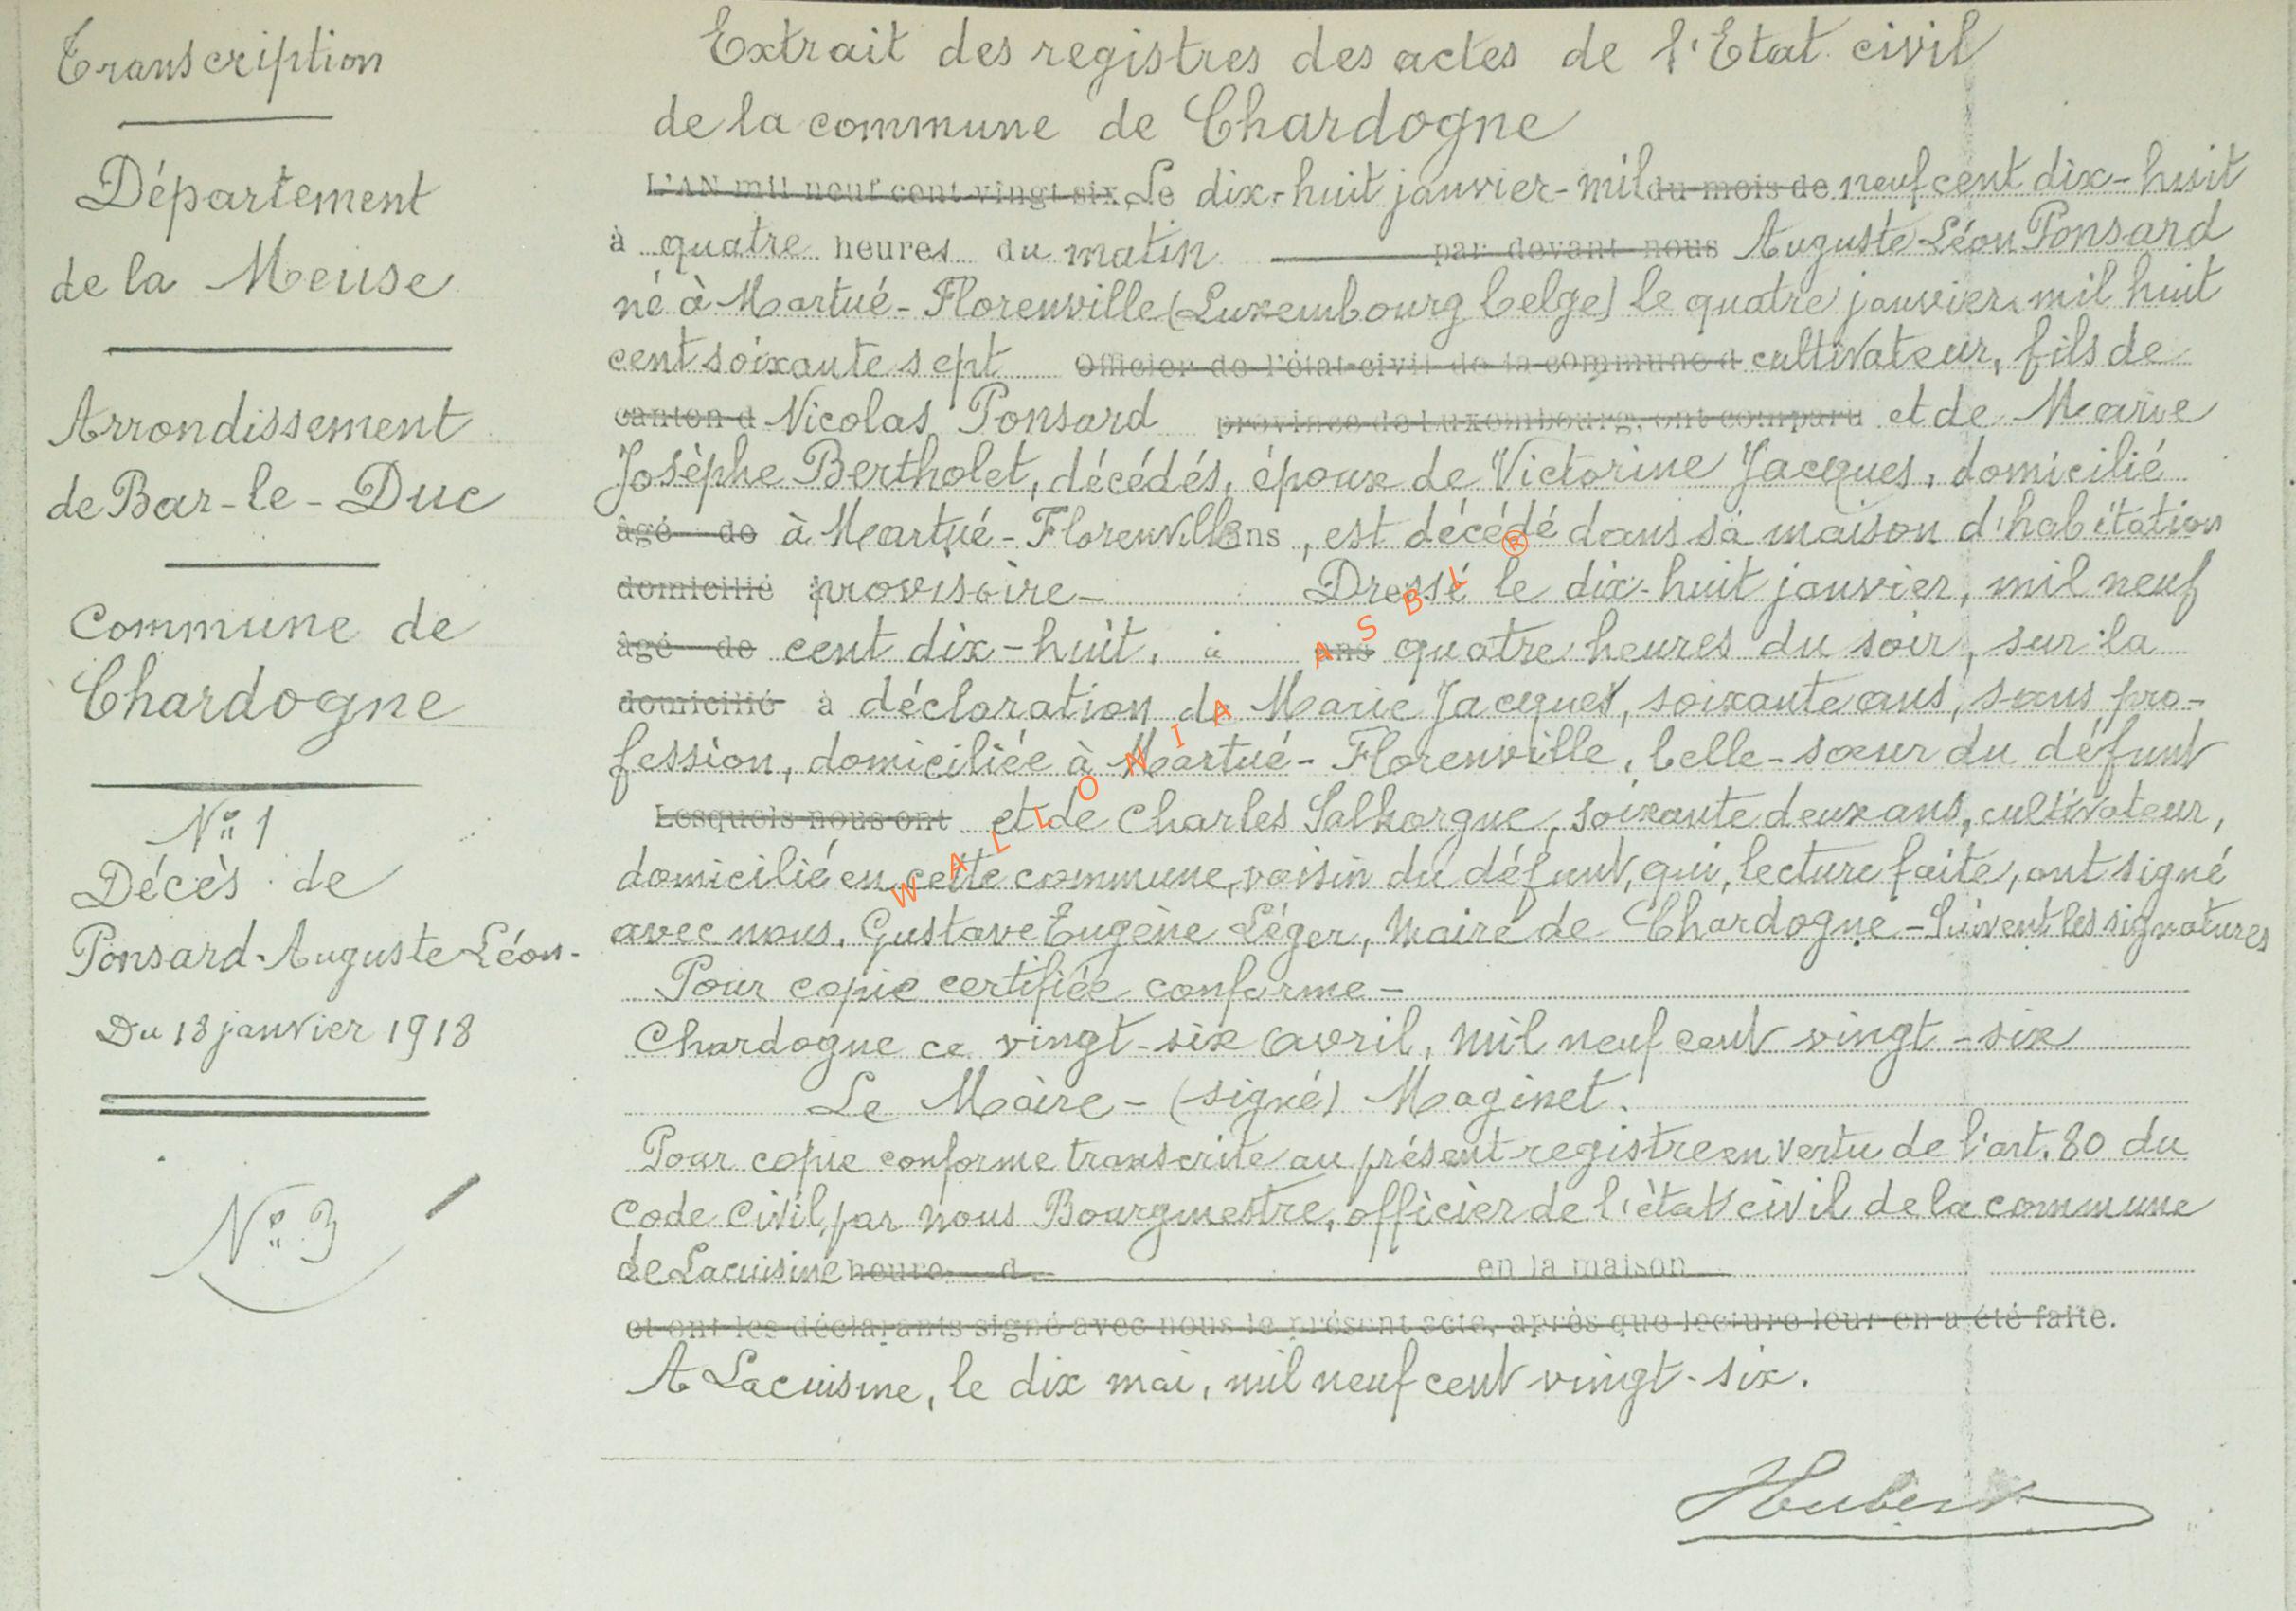 Transcription
Département
de la Meuse
Arrondissement
de Bar-le-Duc
Commune de
Chardogne
Nº 1
Décès de
Ponsard Auguste Léon-
Du 18 janvier 1918
Nº 3
Extrait des registres des actes de l'Etat civil
de la commune de Chardogne
L'AN mil neuf cent vingt-six Le dix-huit janvier-mil du mois de neuf cent dix-huit
à quatre heures du matin par devant nous Auguste Léon Ponsard
né à Martué-Florenville (Luxembourg belge) le quatre janvier mil huit
cent soixante sept Officier de l'état-civil de la commune d cultivateur, fils de
canton d Nicolas Ponsard province de Luxembourg, ont comparu et de Marie
Josèphe Bertholet, décédés, époux de Victorine Jacques, domicilié
âgé de à Martué-Florenville ans, est décédé dans sa maison d'habitation
domicilié provisoire- Dressé le dix-huit janvier, mil neuf
âgé de cent dix-huit, à ans quatre heures du soir, sur la
domicilié à déclaration de Marie Jacques, soixante ans, sans pro-
fession, domiciliée à Martué-Florenville, belle-sœur du défunt
Lesquels nous ont et de Charles Salhorgne, soixante deux ans, cultivateur,
domicilié en cette commune, voisin du défunt, qui, lecture faite, ont signé
avec nous, Gustave Eugène Léger, Maire de Chardogne-Suivent les signatures
Pour copie certifiée conforme-
Chardogne ce vingt-six avril, mil neuf cent vingt-six
Le Maire-(signé) Maginet.
Pour copie conforme transcrite au présent registre en vertu de l'art. 80 du
Code Civil, par nous Bourgmestre, officier de l'état civil de la commune
de Lacuisine heure d en la maison
et ont les déclarants signé avec nous le présent acte, après que lecture leur en a été faite.
A Lacuisine, le dix mai, mil neuf cent vingt-six.
Hubert
WALLONIA ASBL ®